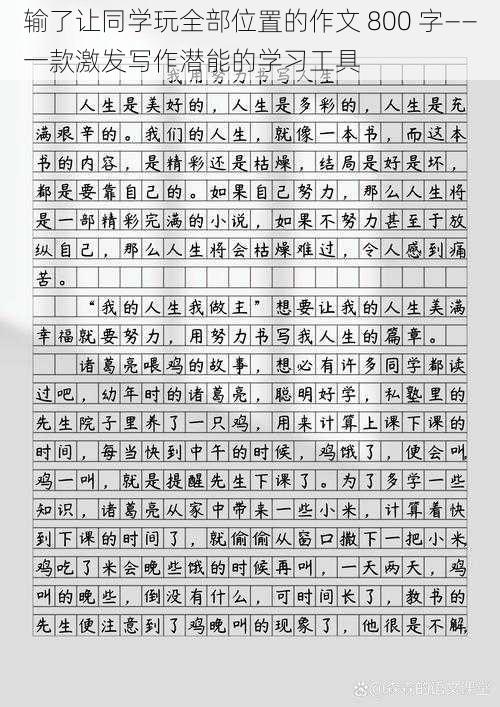 输了让同学玩全部位置的作文 800 字——
一款激发写作潜能的学习工具
我用努力书写人生
人生是美好的，人生是多彩的，人生是充
满艰辛的。我们的人生，就像一本书，而这本
书的内容，是精彩还是枯燥，结局是好是坏，
都是要靠自己的。如果自己努力，那么人生将
是一部精彩完满的小说，如果不努力甚至于放
纵自己，那么人生将会枯燥难过，令人感到痛
苦。
“我的人生我做主”想要让我的人生美满
幸福就要努力，用努力书写我人生的篇章。
诸葛亮喂鸡的故事，想必有许多同学都读
过吧，幼年时的诸葛亮，聪明好学，私塾里的
先生院子里养了一只鸡，用来计算上课下课的
时间，每当快到中午的时候，鸡饿了，便会叫，
鸡一叫，就是提醒先生下课了。为了多学一些
知识，诸葛亮从家中带来一些小米，计算着快
到下课的时间了，就偷偷从窗口撒下一把小米，
鸡吃了米会晚些饿的时候再叫，一天两天，鸡
叫的晚些，倒没有什么，可时间长了，教书的
先生便注意到了鸡晚叫的现象了，他很是不解，